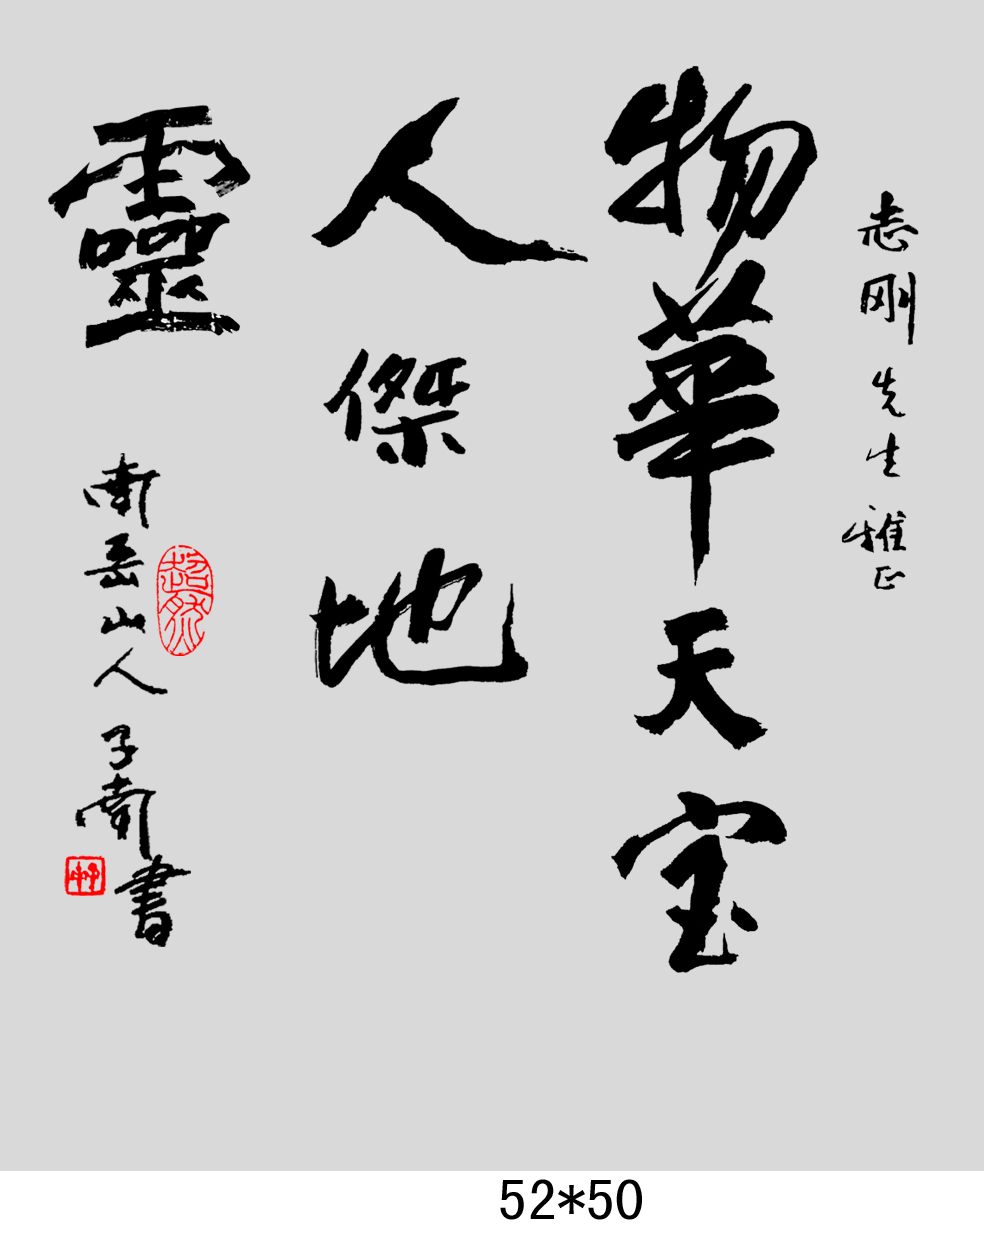 志刚先生雅正
物華天宝
人傑地
靈
南岳山人子南書
超然
52*50